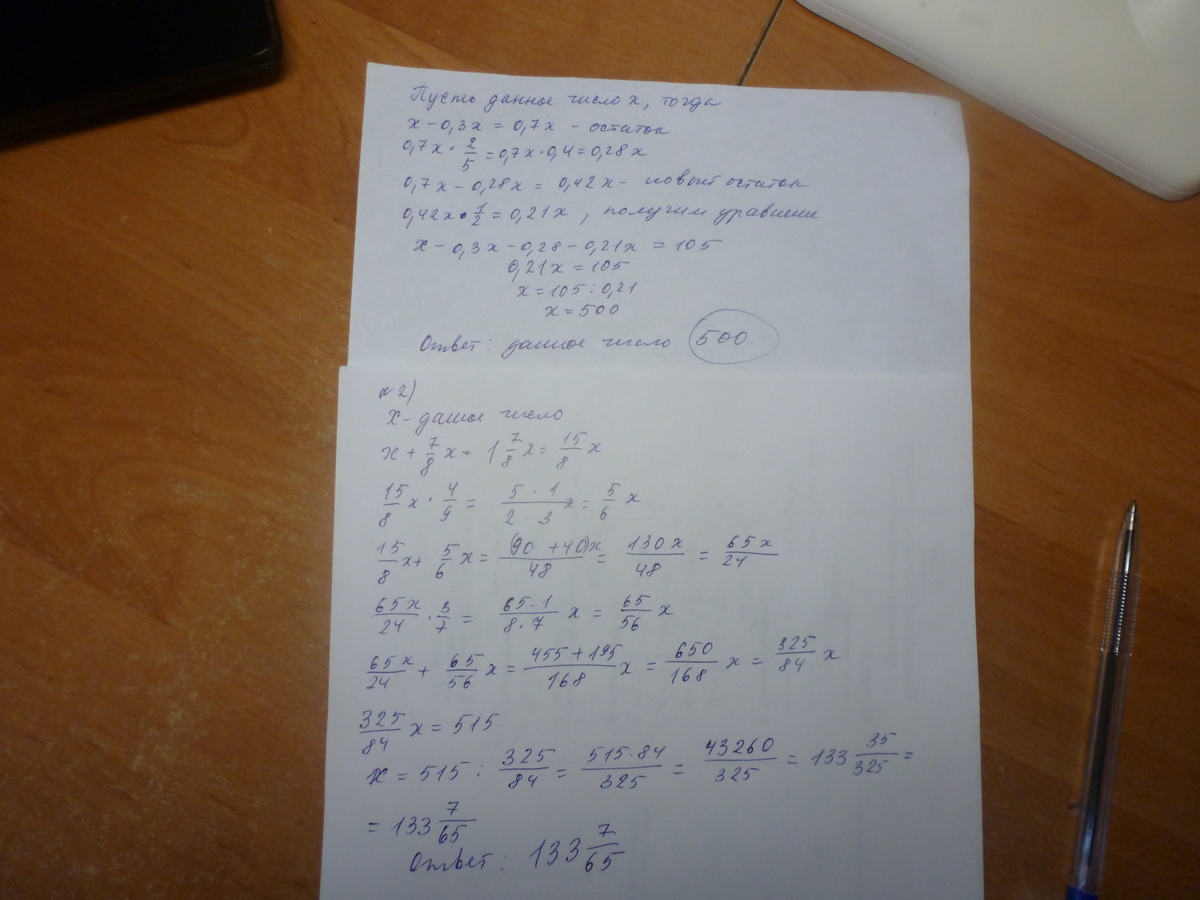 Пусть данное число x, тогда
x - 0,3x = 0,7x - остаток
0,7x · 2/5 = 0,7x · 0,4 = 0,28x
0,7x - 0,28x = 0,42x - новый остаток
0,42x · 1/2 = 0,21x, получим уравнение
x - 0,3x - 0,28 - 0,21x = 105
0,21x = 105
x = 105 : 0,21
x = 500
Ответ: данное число 500
№2)
X - данное число
x + 7/8 x = 1 7/8 x = 15/8 x
15/8 x · 4/9 = 5·1/2·3 x = 5/6 x
15/8 x + 5/6 x = (90+40)x/48 = 130x/48 = 65x/24
65x/24 · 3/7 = 65·1/8·7 x = 65/56 x
65x/24 + 65/56 x = 455+195/168 x = 650/168 x = 325/84 x
325/84 x = 515
x = 515 : 325/84 = 515·84/325 = 43260/325 = 133 35/325 =
= 133 7/65
Ответ: 133 7/65